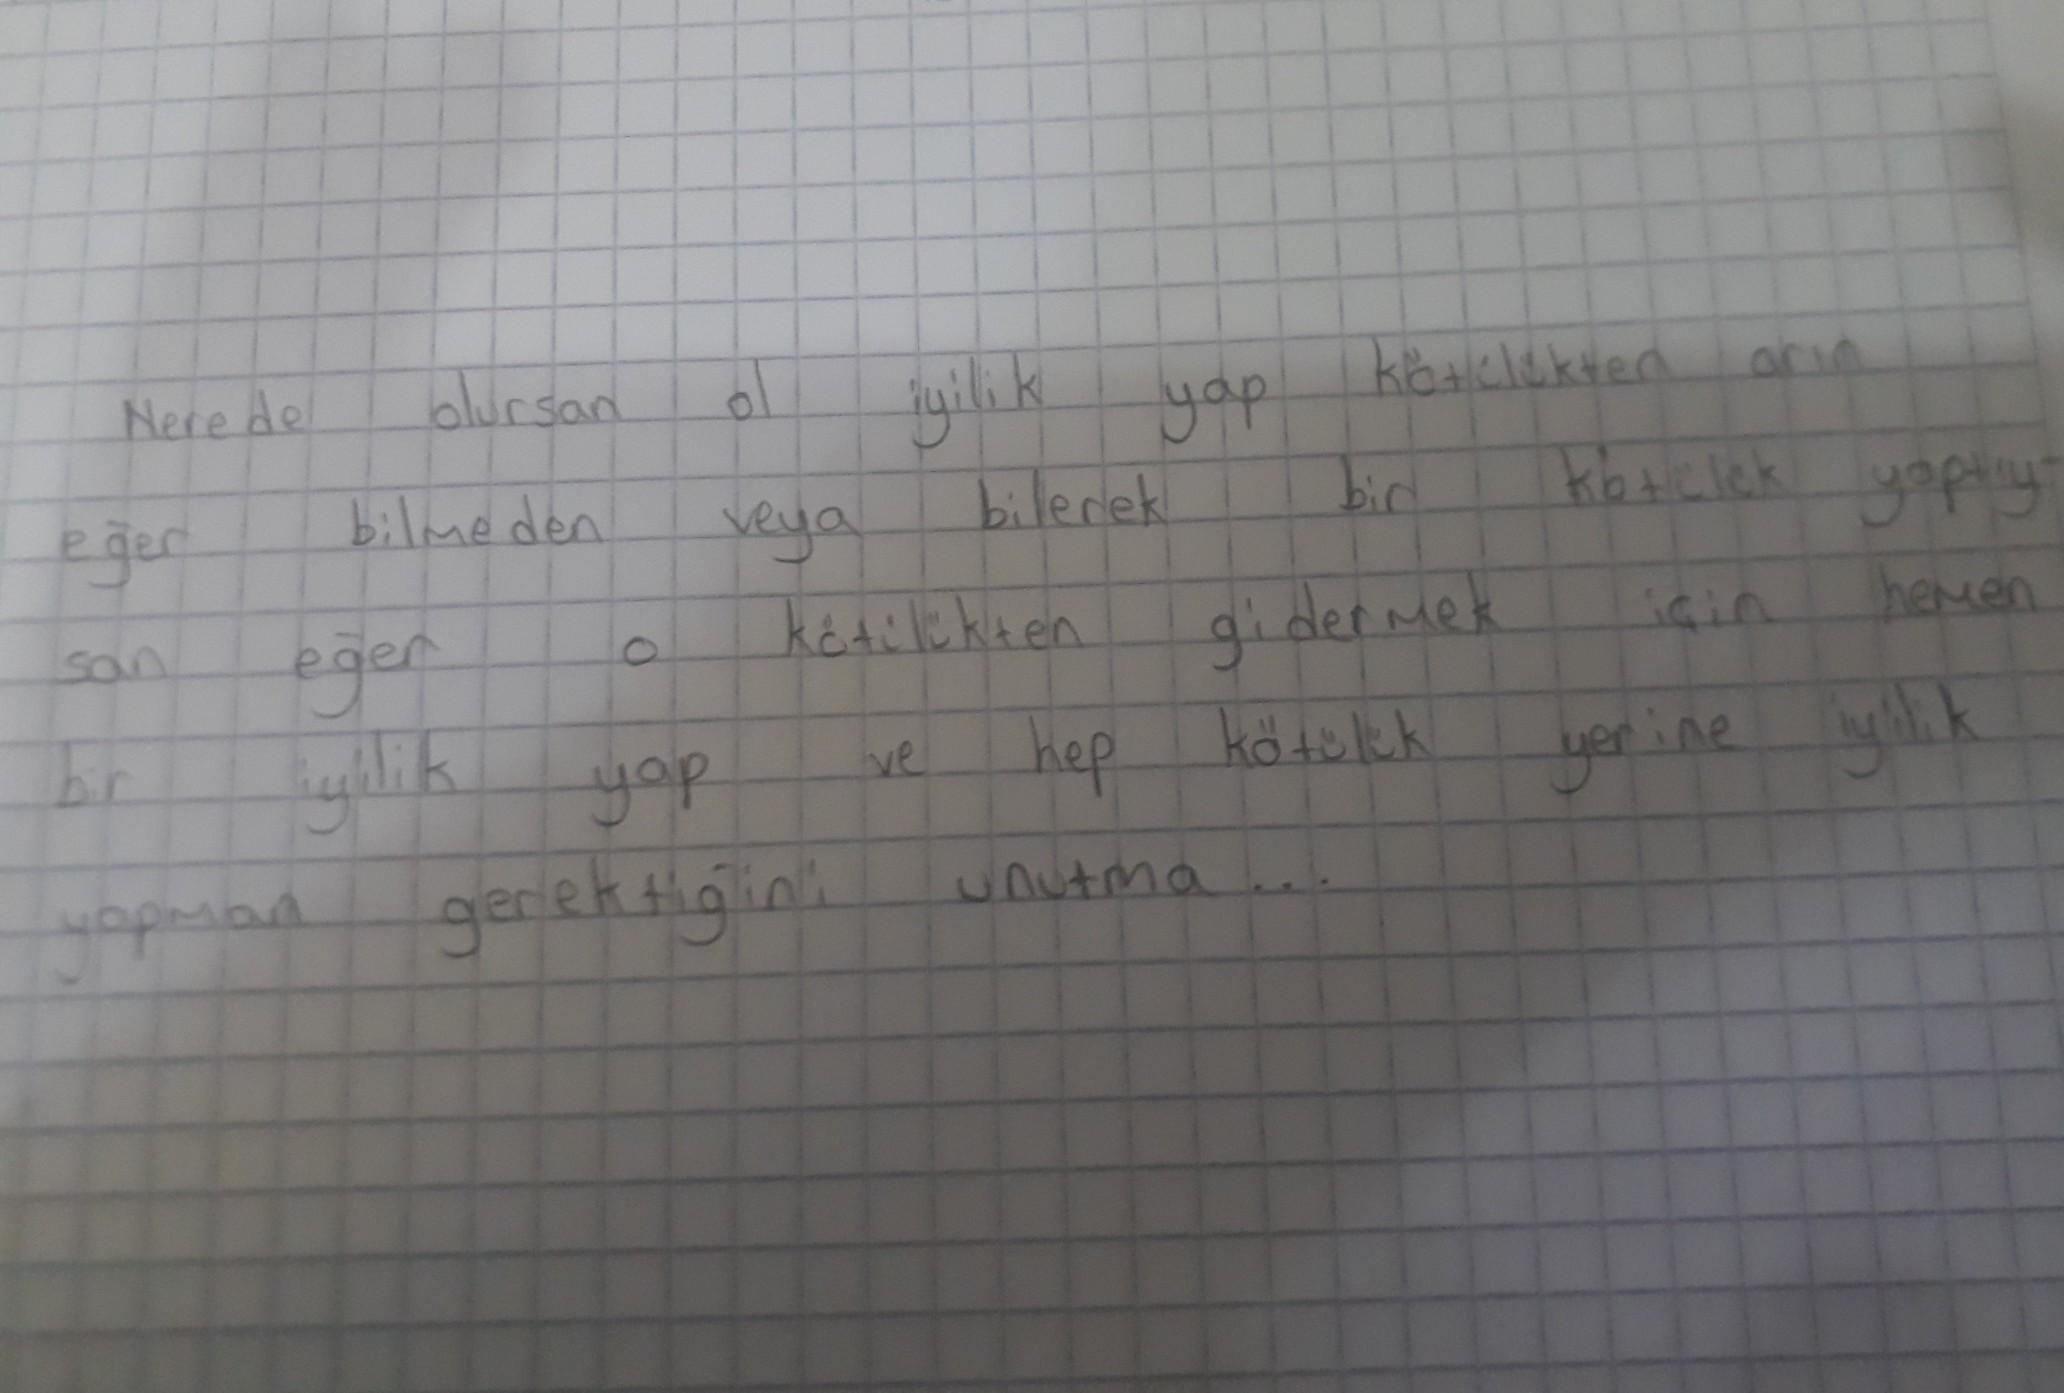 Nerede olursan ol iyilik yap kötülükten arın
eğer bilmeden veya bilerek bir kötülük yaptıy-
san eğer o kötülükten gidermek için hemen
bir iyilik yap ve hep kötülük yerine iyilik
yapman gerektiğini unutma...